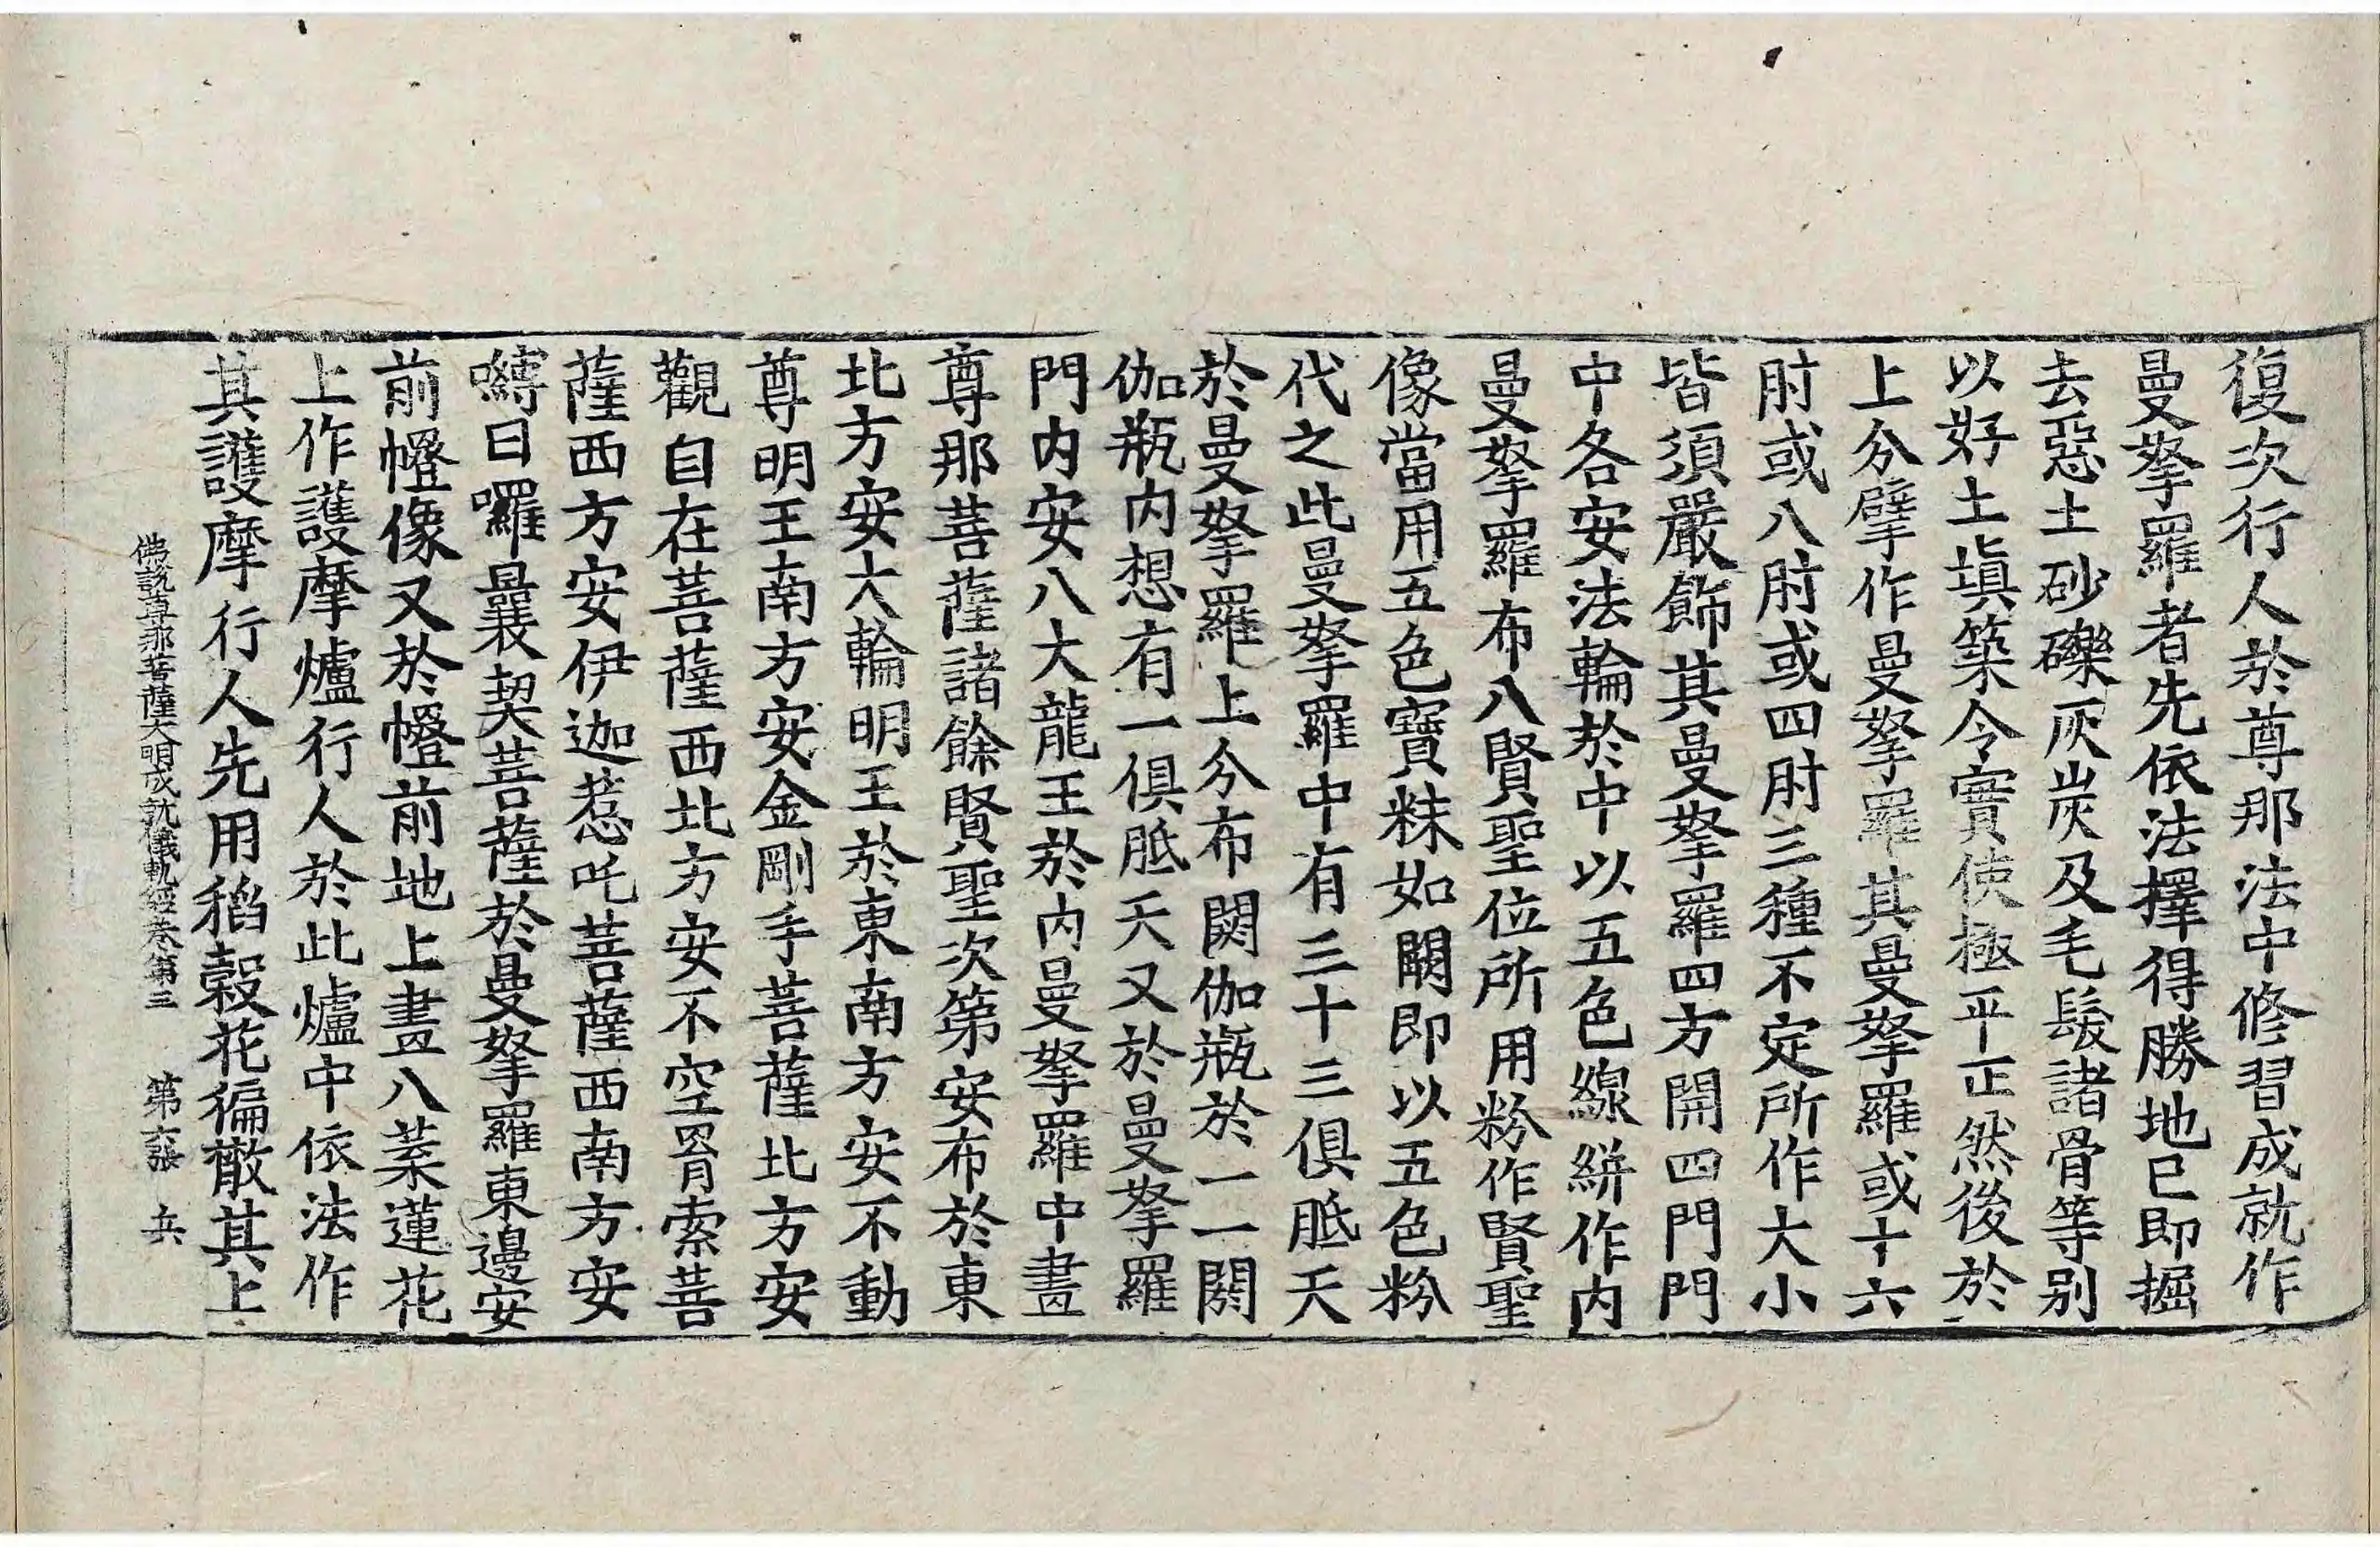 復次行人於尊那法中修習成就作
曼拏羅者先依法擇得勝地已即掘
去惡土砂礫灰炭及毛髮諸骨等別
以好土塡築令實使極平正然後於
上分擘作曼拏羅其曼拏羅或十六
肘或八肘或四肘三種不定所作大小
皆須嚴飾其曼拏羅四方開四門門
中各安法輪於中以五色線絣作內
曼拏羅布八賢聖位所用粉作賢聖
像當用五色寶粖如闕即以五色粉
代之此曼拏羅中有三十三俱胝天
於曼拏羅上分布閼伽瓶於一一閼
伽瓶內想有一俱胝天又於曼拏羅
門內安八大龍王於內曼拏羅中畫
尊那菩薩諸餘賢聖次第安布於東
北方安大輪明王於東南方安不動
尊明王南方安金剛手菩薩北方安
觀自在菩薩西北方安不空罥索菩
薩西方安伊迦惹吒菩薩西南方安
嚩日囉曩契菩薩於曼拏羅東邊安
前㡧像又於㡧前地上畫八葉蓮花
上作護摩爐行人於此爐中依法作
其護摩行人先用稻穀花徧散其上
佛說尊那菩薩大明成就儀軌經卷第三 第六張 兵